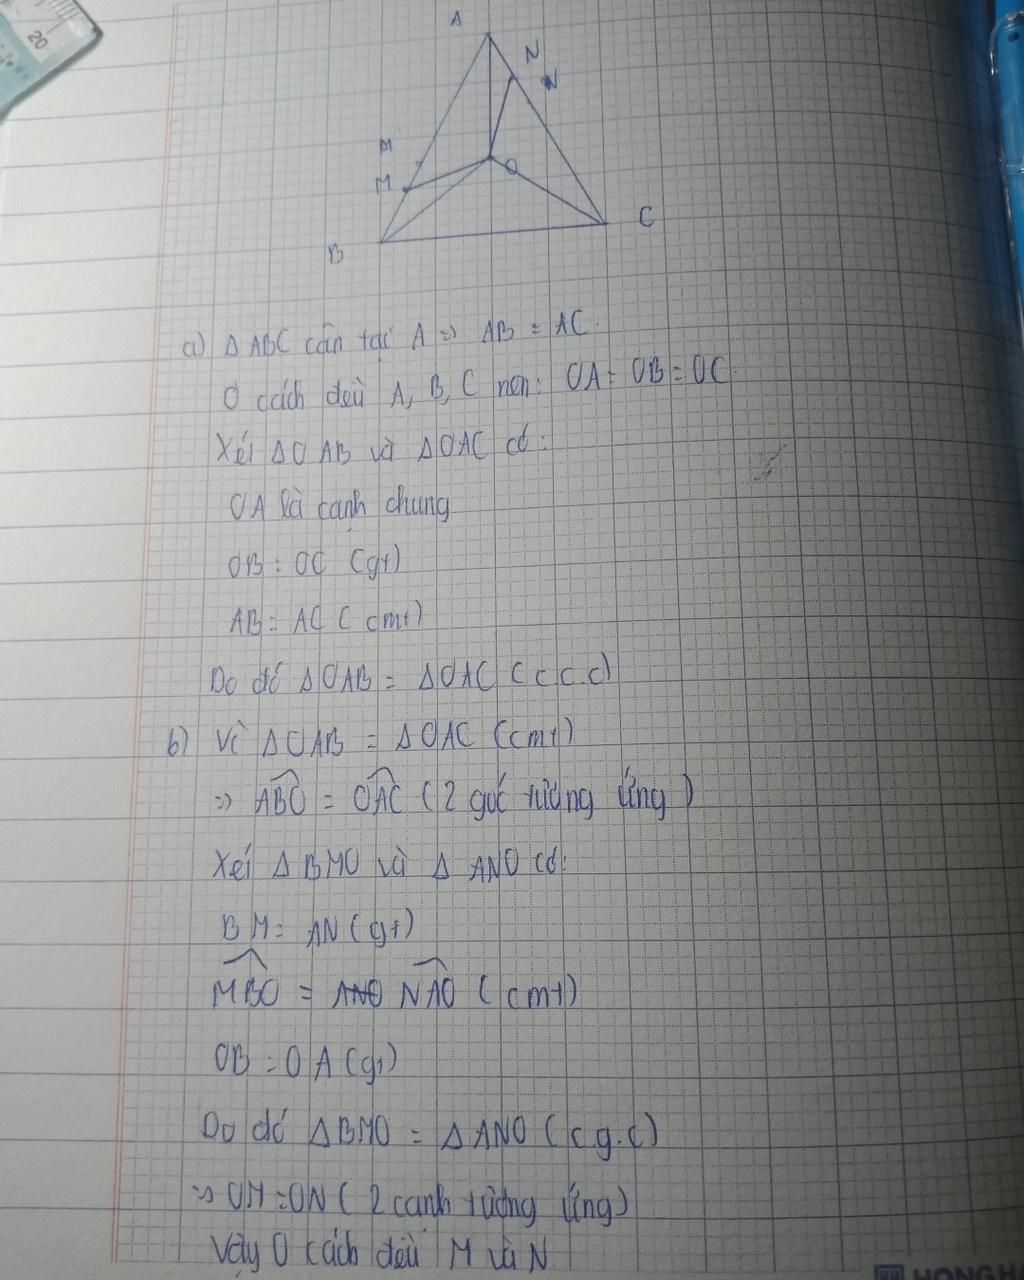 20
A
N
M
O
C
B
a) Δ ABC cân tại A => AB = AC.
O cách đều A, B, C nên: OA = OB = OC
Xét ΔOAB và ΔOAC có:
OA là cạnh chung
OB = OC (gt)
AB = AC (cmt)
Do đó ΔOAB = ΔOAC (c.c.c)
b) Vì ΔOAB = ΔOAC (cmt)
=> ABO = OAC (2 góc tương ứng)
Xét Δ BMO và Δ ANO có:
BM = AN (gt)
MBO = ANO NAO (cmt)
OB = OA (gt)
Do đó ΔBMO = ΔANO (c.g.c)
=> OM = ON (2 cạnh tương ứng)
Vậy O cách đều M và N
HONG HA